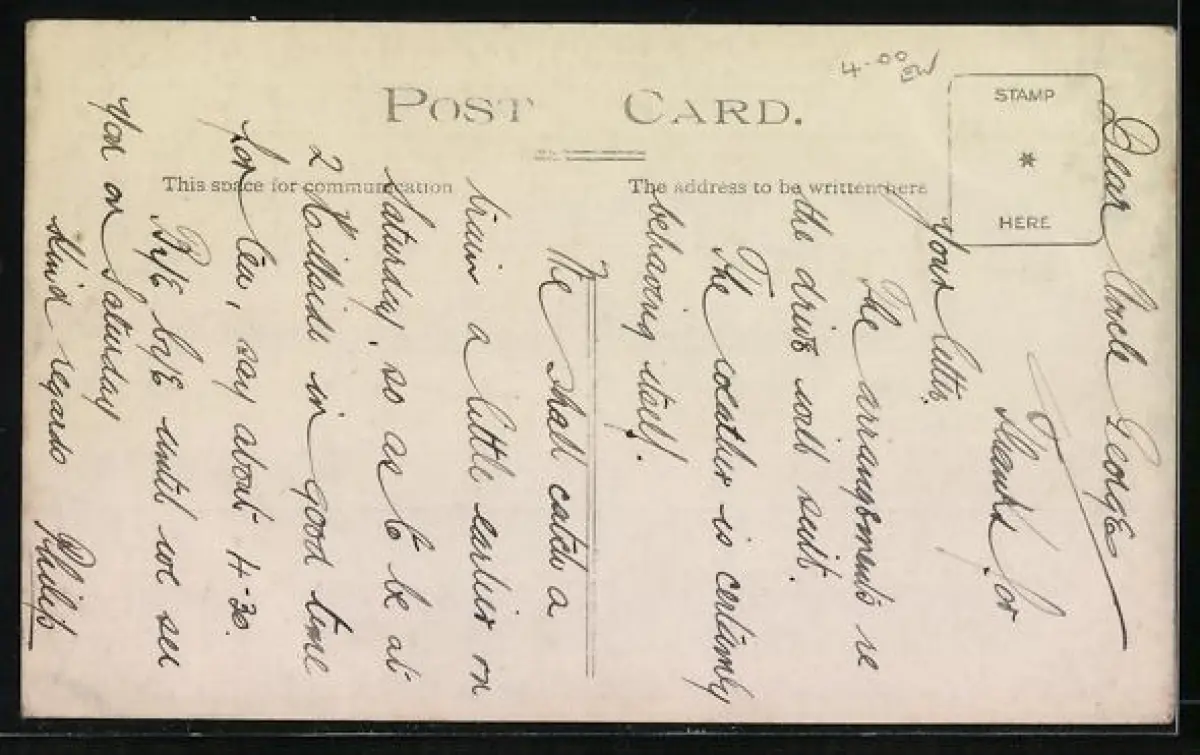 POST CARD.
This space for communication
The address to be written here
STAMP
HERE
4-00
EW
Dear Uncle George
Thanks for
your letter.
The arrangements re
the drive will suit.
The weather is certainly
behaving itself.
We shall catch a
train a little earlier on
Saturday, so as to be at
2 Hillside in good time
for tea, say about 4-30.
Bye bye until we see
you on Saturday
Kind regards